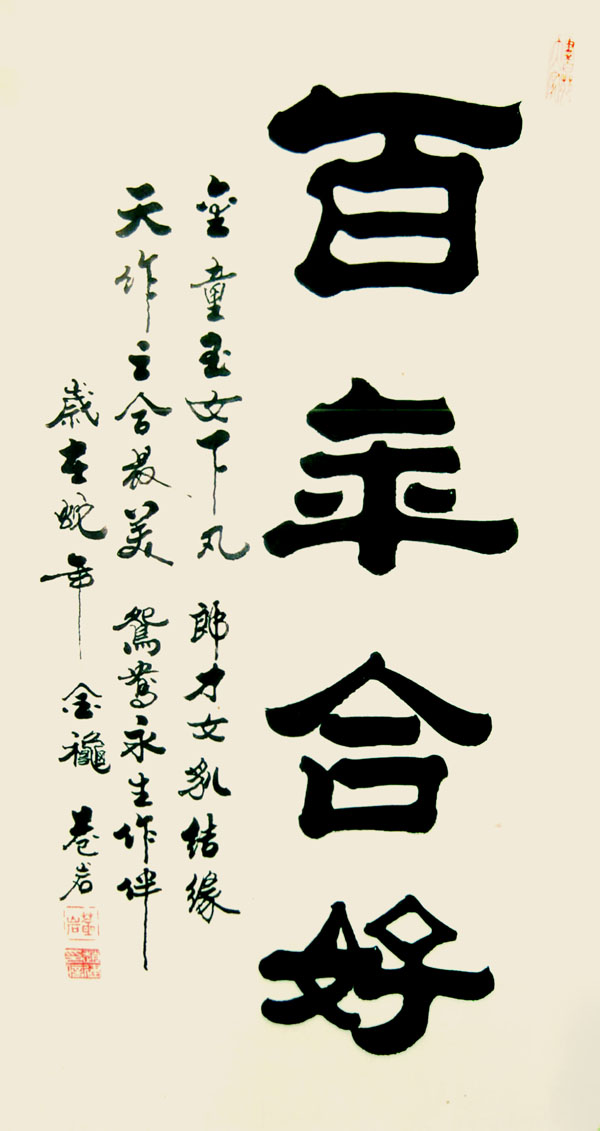 百年合好
金童玉女下凡 郎才女貌結緣
天作之合最美 鴛鴦永生作伴
歲在蛇年 金龝 岩